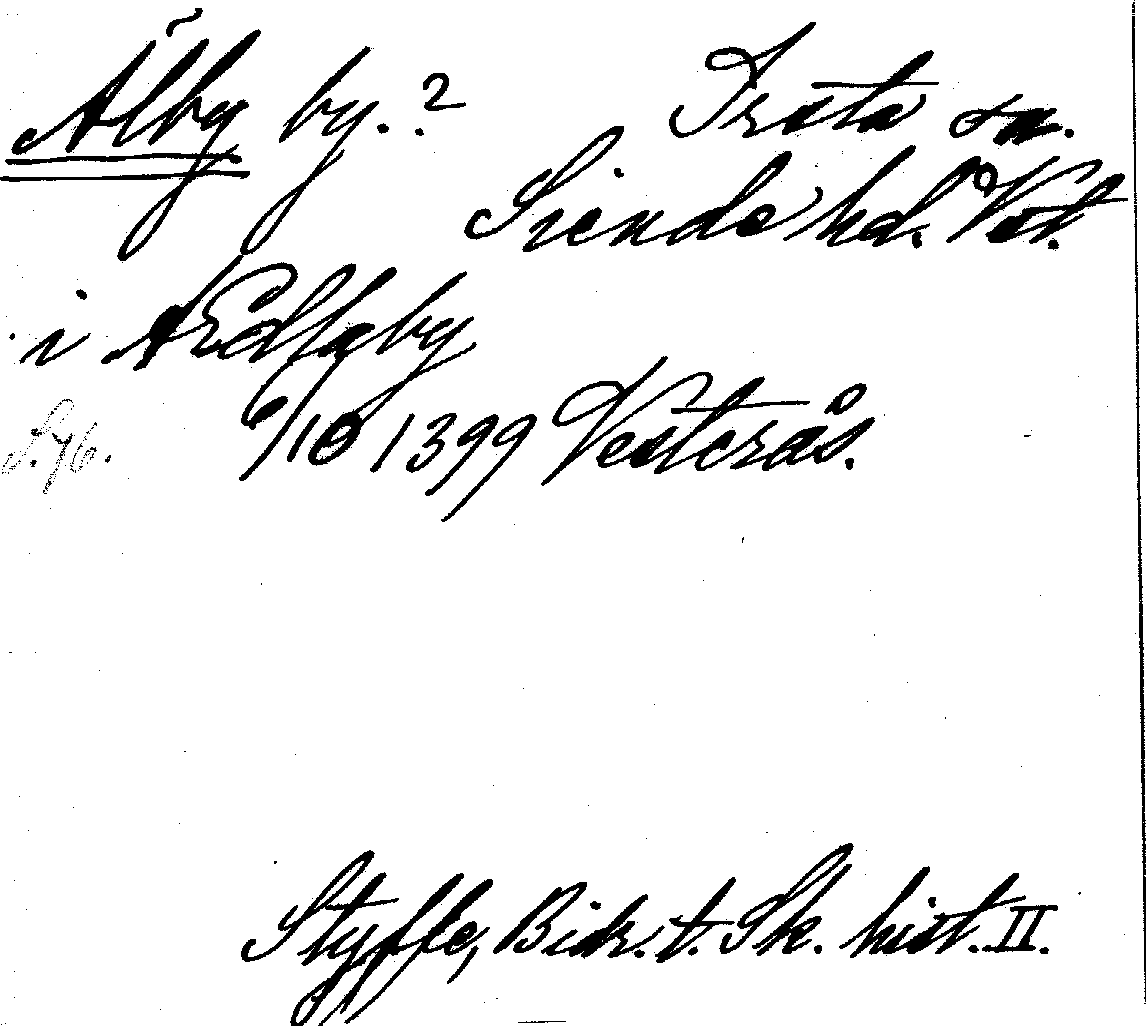 Älby by.? Irsta sn.
Siende hd. Vst.
i AEdlgby
S. 76. 6/10 1399 Vesterås.
Styffe, Bidr. t. Sk. hist. II.